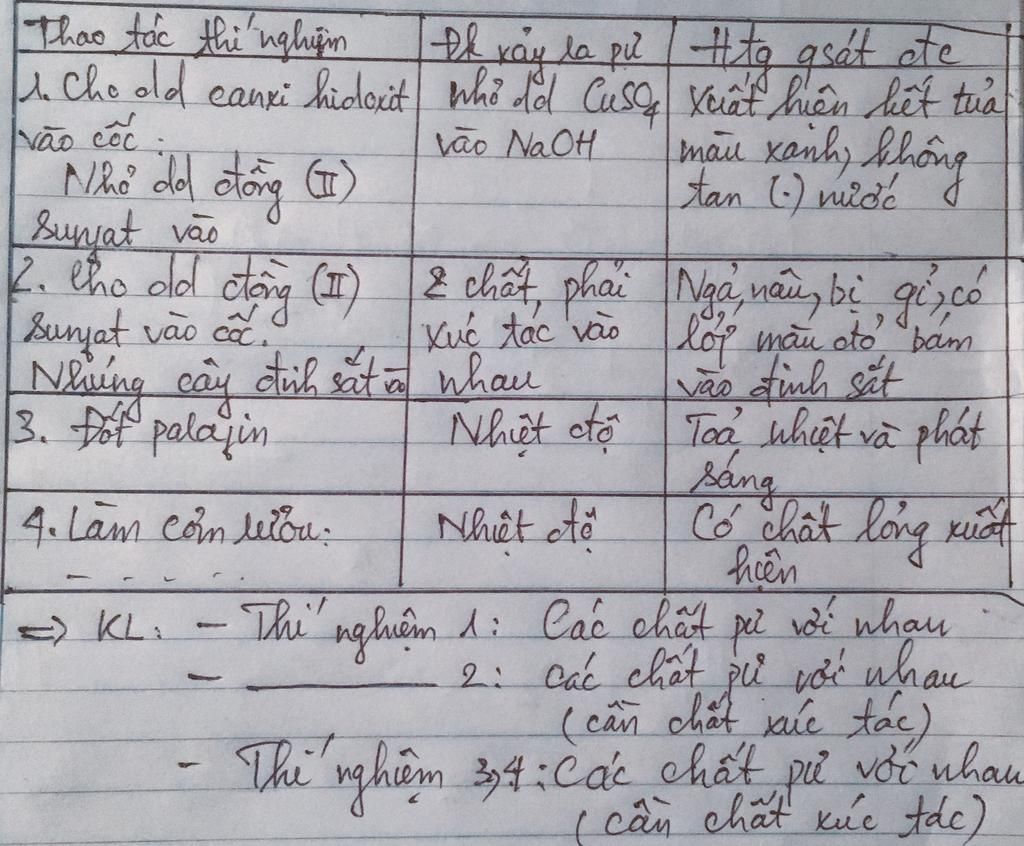 Thao tác thí nghiệm
Đk xảy ra pứ
Htg qsát đc
1. Cho dd canxi hidoxit
vào cốc:
Nhỏ dd đồng (II)
sunfat vào
nhỏ dd CuSO4
vào NaOH
Xuất hiện kết tủa
màu xanh, không
tan (.) nước
2. Cho dd đồng (II)
sunfat vào cốc.
Nhúng cây đinh sắt và
2 chất, phải
xúc tác vào
nhau
Ngả, nâu, bị gỉ, có
lớp màu đỏ bám
vào đinh sắt
3. Đốt palafin
Nhiệt độ
Toả nhiệt và phát
sáng
4. Làm cơm rượu:
- - - . . .
Nhiệt độ
Có chất lỏng xuất
hiện
=> KL: - Thí nghiệm 1: Các chất pứ với nhau
- ———— 2: các chất pứ với nhau
(cần chất xúc tác)
- Thí nghiệm 3,4: Các chất pứ với nhau
(cần chất xúc tác)